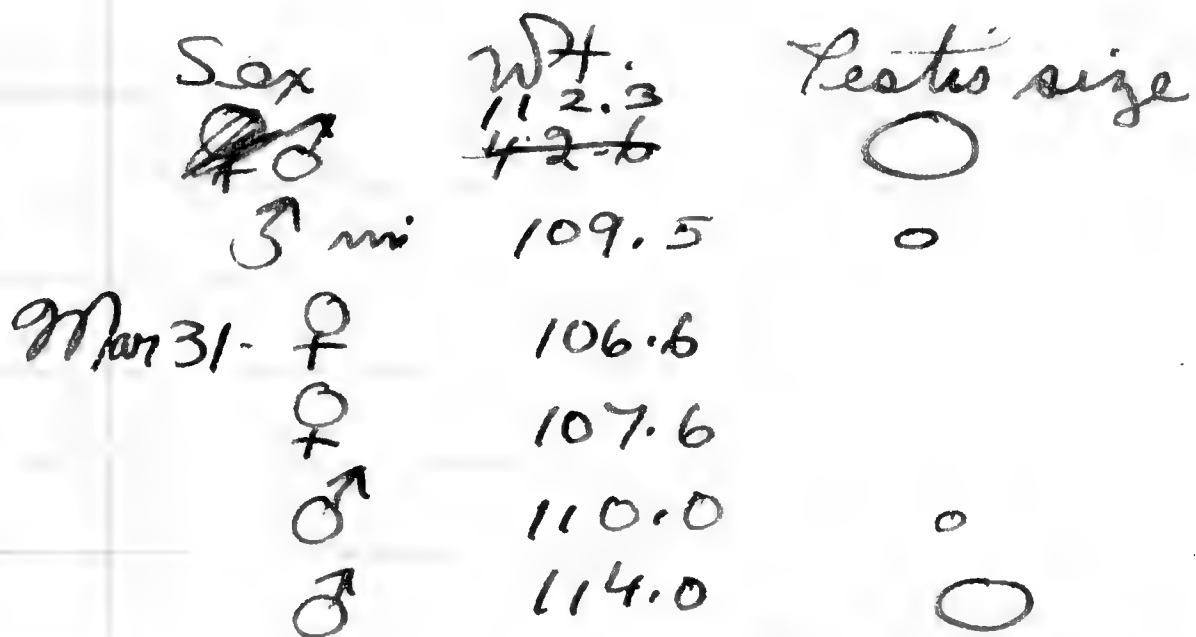 Sex Wt. Testis size
112.3
♀ ♂ 42.6
♂ mi 109.5
Mar 31 - ♀ 106.6
♀ 107.6
♂ 110.0
♂ 114.0